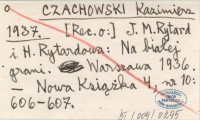 CZACHOWSKI Kazimierz
1937. [Rec. o:] J. M. Rytard
i H. Rytardowa: Na białej
grani. Warszawa 1936.
— Nowa Książka 4, nr 10:
606-607.